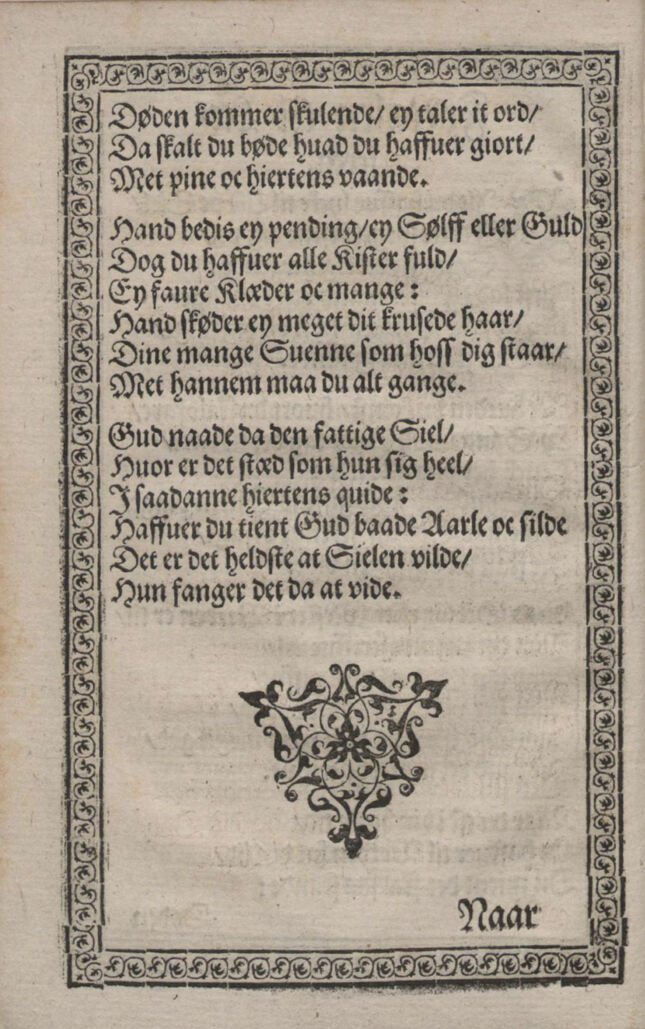 Døden kommer skulende/ ey taler it ord/
Da skalt du bøde huad du haffuer giort/
Met pine oc hiertens vaande.
Hand bedis ey pending/ey Sølff eller Guld
Dog du haffuer alle Kister fuld/
Ey faure Klæder oc mange:
Hand skøder ey meget dit krusede haar/
Dine mange Suenne som hoss dig staar/
Met hannem maa du alt gange.
Gud naade da den fattige Siel/
Huor er det stæd som hun sig heel/
J saadanne hiertens quide:
Haffuer du tient Gud baade Aarle oc silde
Det er det heldste at Sielen vilde/
Hun fanger det da at vide.
Naar